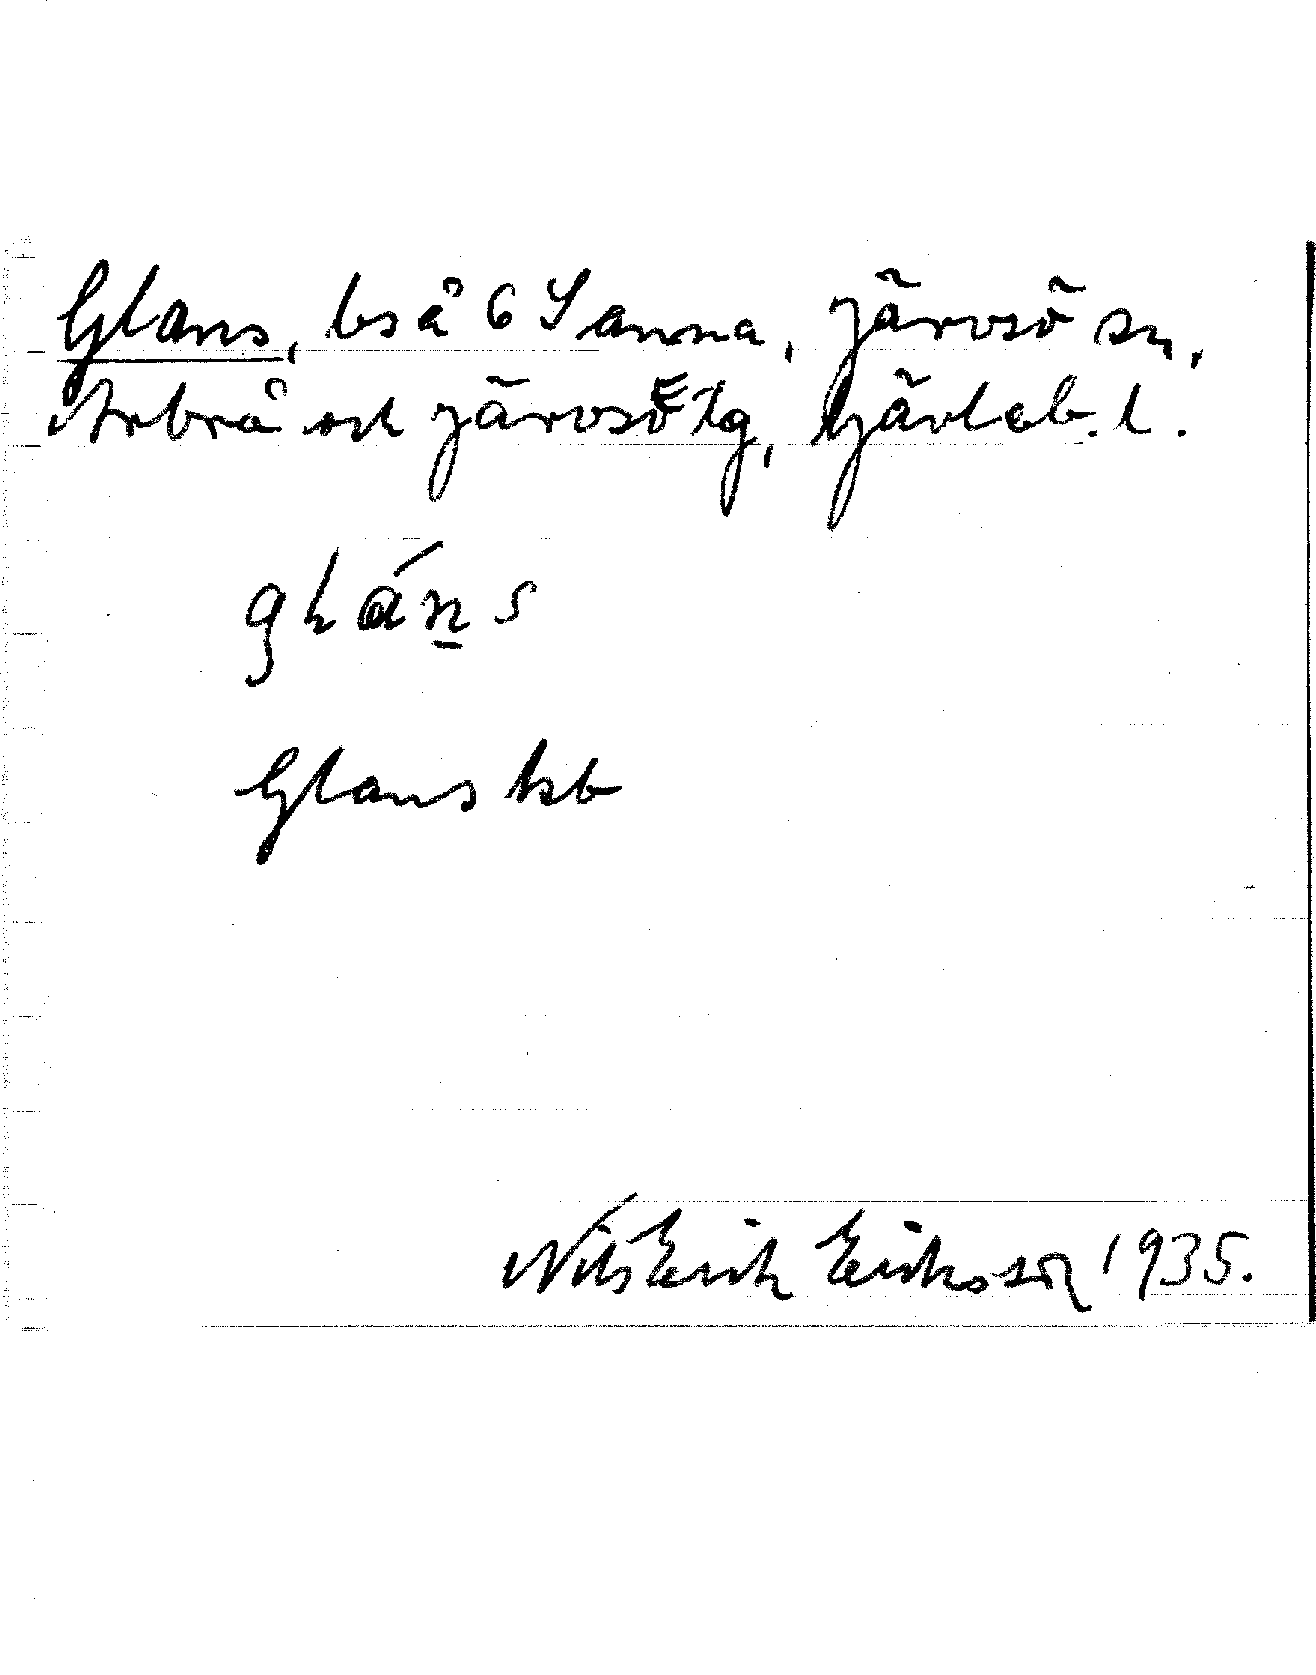 Glans, bs å 6 Sanna, Järvsö sn,
Arbrå och Järvsö tg, Gävleb. l.
glán̠s
Glans kb
Nils Erik Eriksson 1935.